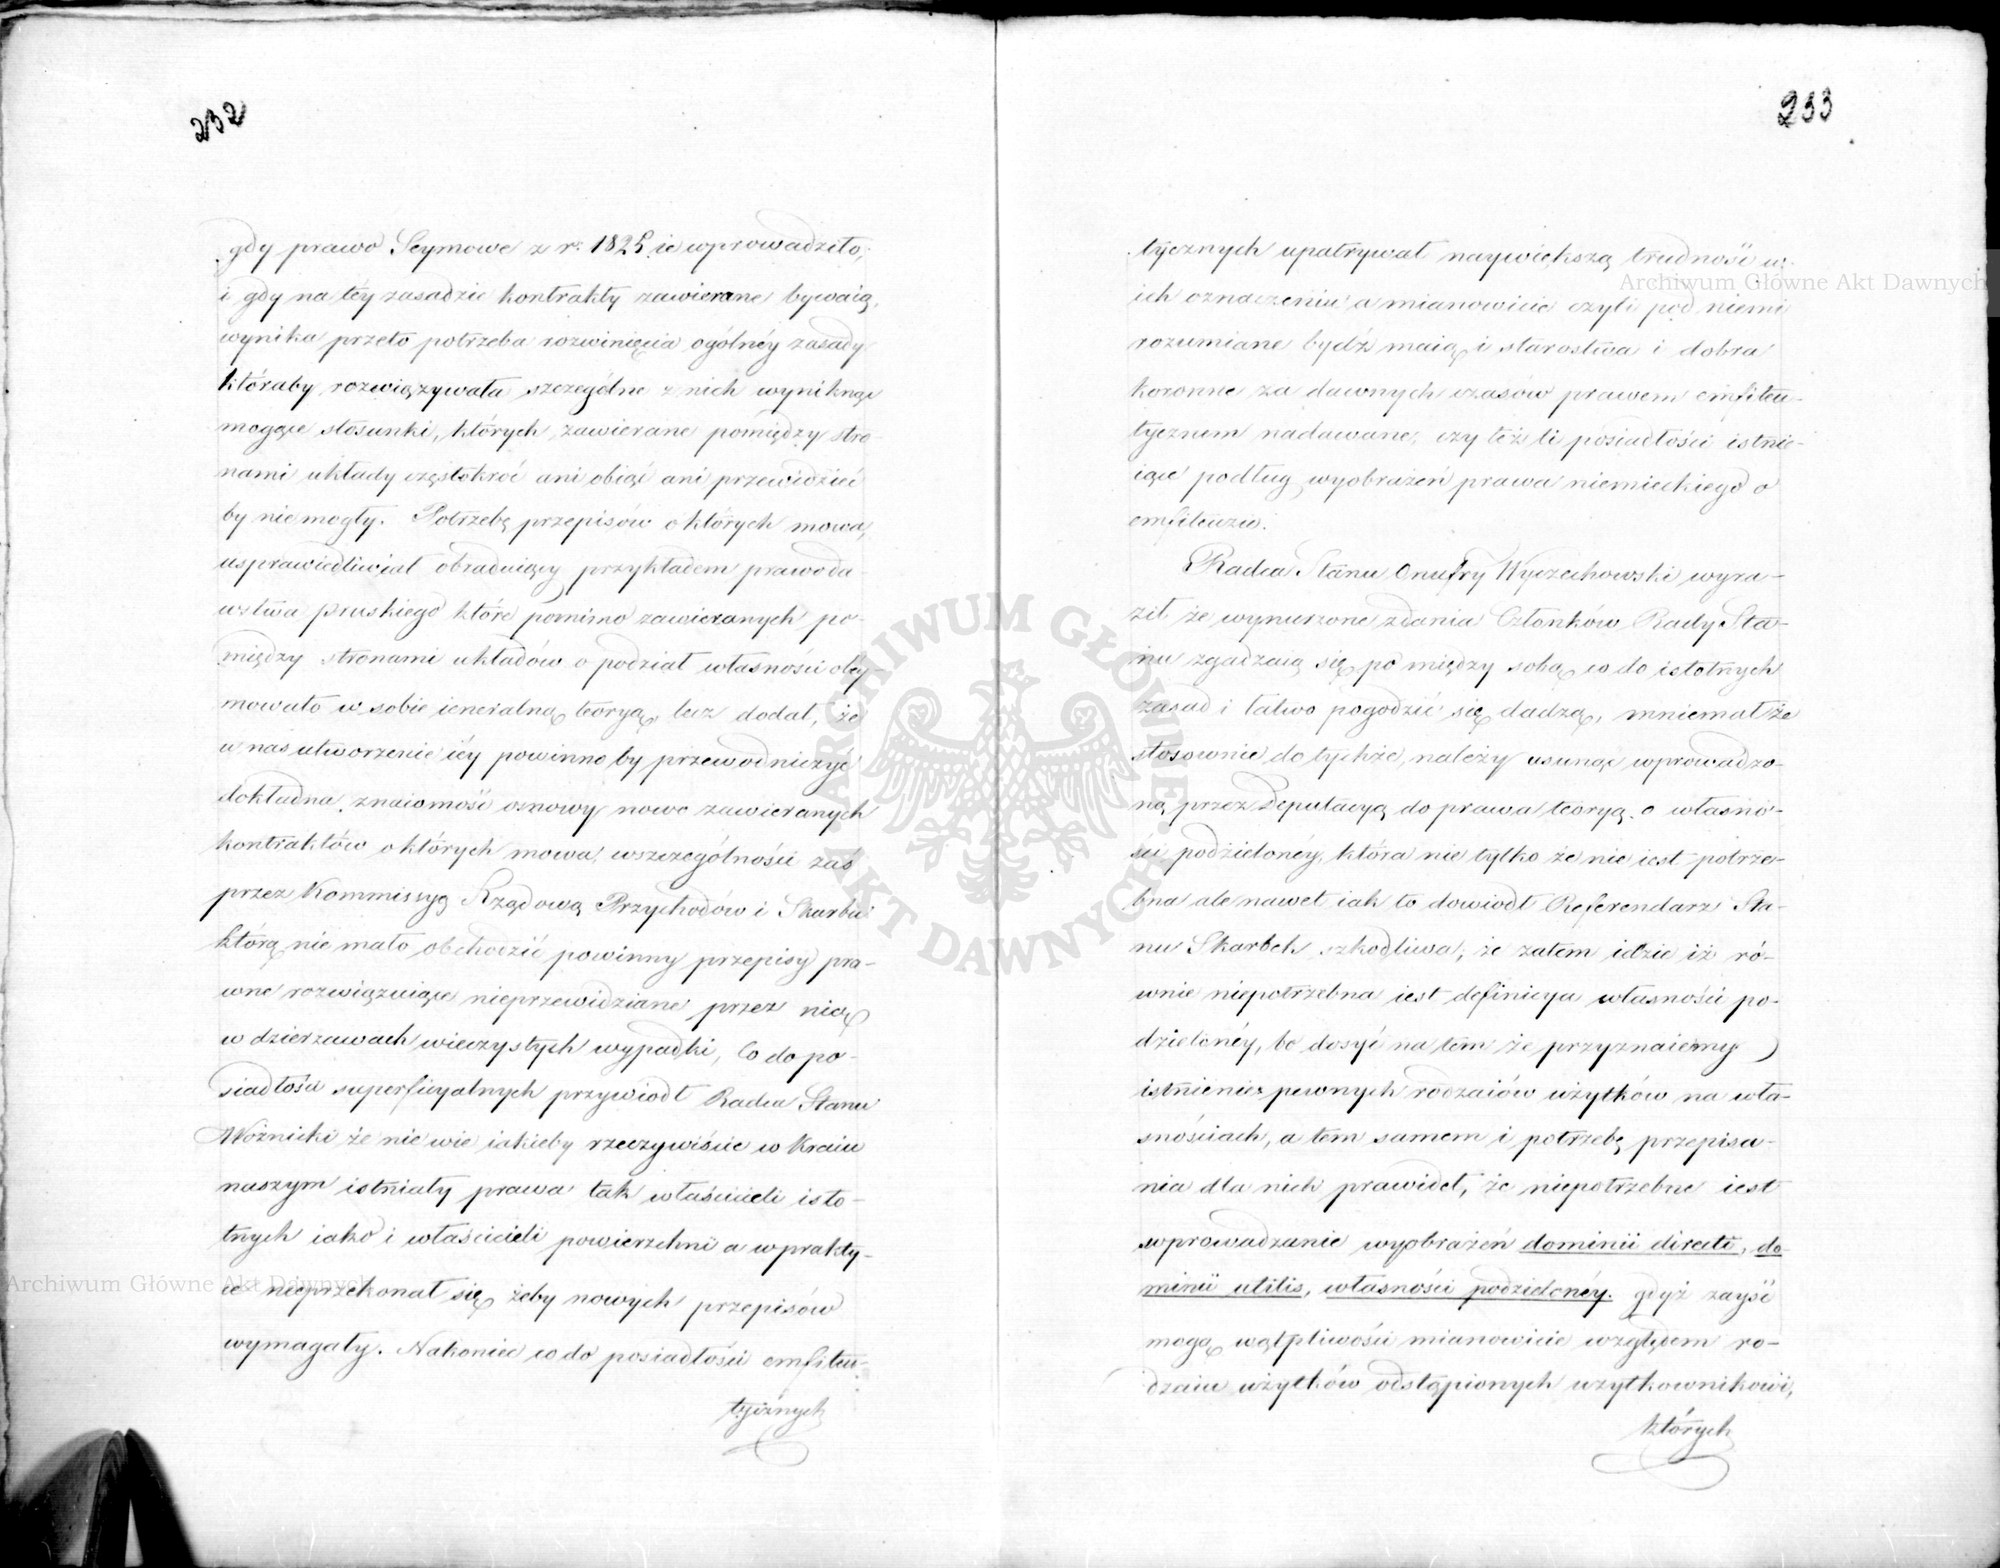 232
gdy prawo Seymowe z r. 1825 ie wprowadziło,
i gdy na téy zasadzie kontrakty zawierane bywaią,
wynika przeto potrzeba rozwinięcia ogólnéy zasady
któraby rozwiązywała szczególne z nich wyniknąć
mogące stosunki, których zawierane pomiędzy stro-
nami układy częstokroć ani obiąć ani przewidzieć
by nie mogły. Potrzebę przepisów o których mowa,
usprawiedliwiał obraduiący przykładem prawoda-
wstwa pruskiego które pomimo zawieranych po-
między stronami układów o podział własności obey-
mowało w sobie ieneralną teoryą, lecz dodał, że
u nas utworzenie iéy powinnoby przewodniczyć
dokładna znaiomość osnowy nowo zawieranych
kontraktów o których mowa, wszczególności zaś
przez Kommissyą Rządową Przychodów i Skarbu
którą nie mało obchodzić powinny przepisy pra-
wne rozwiązuiące nieprzewidziane przez nią
w dzierzawach wieczystych wypadki, Co do po-
siadłości superficyalnych przywiodł Radca Stanu
Woźnicki że nie wie iakieby rzeczywiście w Kraiu
naszym istniały prawa tak właścicieli isto-
tnych iako i właścicieli powierzchni a w prakty-
ce nieprzekonał się żeby nowych przepisów
wymagały. Nakoniec co do posiadłości emfiteu-
tycznych
233
tycznych upatrywał naywiększą trudność w
ich oznaczeniu a mianowicie czyli pod niemi
rozumiane bydź maią i starostwa i dobra
koronne za dawnych czasów prawem emfiteu-
tycznem nadawane, czy też li posiadłości istnie-
iące podług wyobrażeń prawa niemieckiego o
emfiteuzie.
Radca Stanu Onufry Wyczechowski wyra-
ził że wynurzone zdania Członków Rady Sta-
nu zgadzaią się po między sobą co do istotnych
zasad i łatwo pogodzić się dadzą, mniemał że
stosownie do tychże należy usunąć wprowadzo-
ną przez Deputacyą do prawa teoryą o własno-
ści podzielonéy, która nie tylko że nie iest potrze-
bna ale nawet iak to dowiodł Referendarz Sta-
nu Skarbek szkodliwa, że zatem idzie iż ró-
wnie niepotrzebna iest definicya własności po-
dzielonéy, bo dosyć na tem że przyznaiemy
istnienie pewnych rodzaiów użytków na wła-
snościach, a tem samem i potrzebę przepisa-
nia dla nich prawideł, że niepotrzebne iest
wprowadzanie wyobrażeń dominii directi, do-
minii utilis, własności podzielonéy. gdyż zayść
mogą wątpliwości mianowicie względem ro-
dzaiu użytków odstąpionych użytkownikowi,
których
ARCHIWUM GŁÓWNE AKT DAWNYCH
Archiwum Główne Akt Dawnych
Archiwum Główne Akt Dawnych